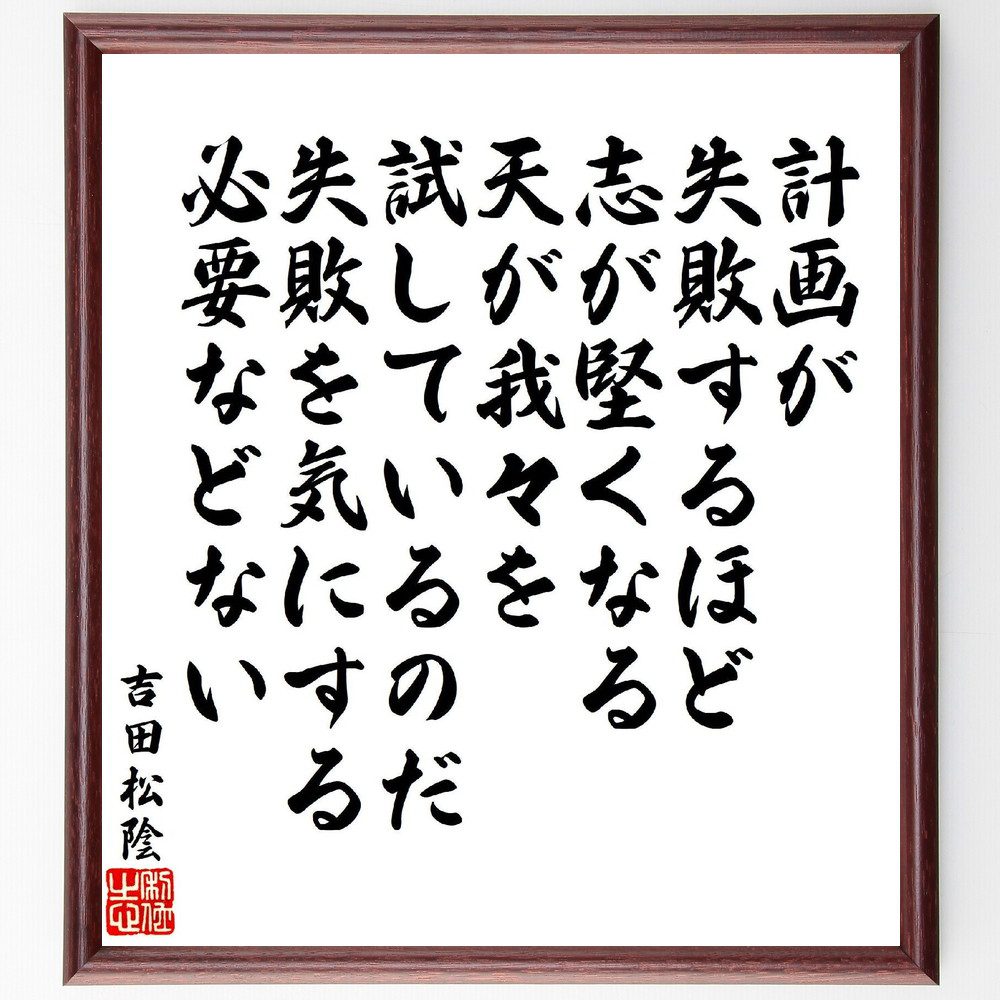 計画が
失敗するほど
志が堅くなる
天が我々を
試しているのだ
失敗を気にする
必要などない
吉田松陰